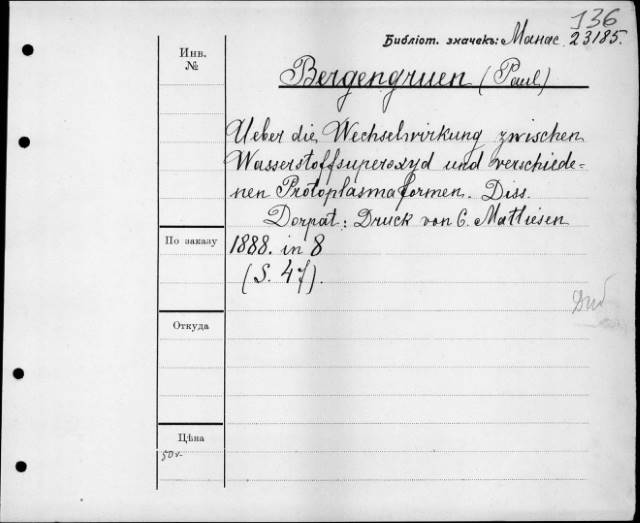 136
Библіот. значекъ: Манас. 23185.
Инв.
№
Bergengruen (Paul)
Ueber die Wechselwirkung zwischen
Wasserstoffsuperoxyd und verschiede=
nen Protoplasmaformen. Diss.
Dorpat: Druck von C. Mattiesen
По заказу
1888. in 8
(S. 47).
Откуда
Цѣна